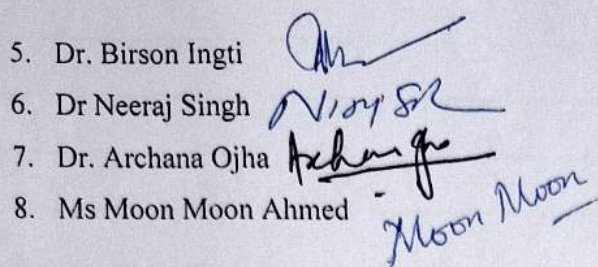 5. Dr. Birson Ingti
6. Dr Neeraj Singh
7. Dr. Archana Ojha
8. Ms Moon Moon Ahmed
Moon Moon